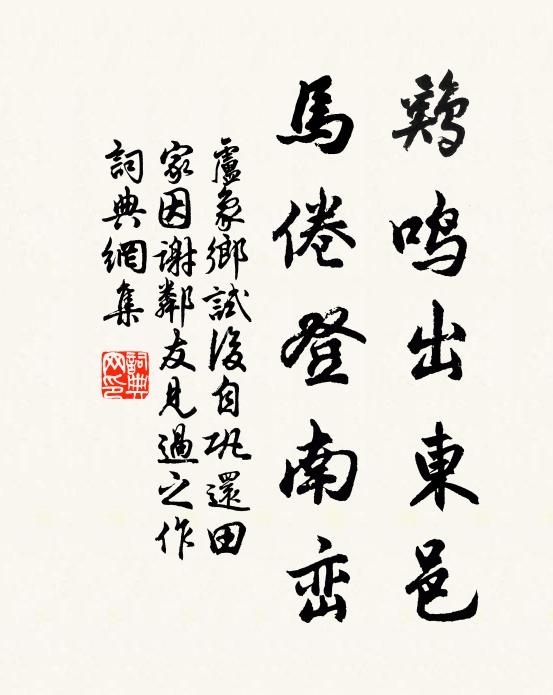 鷄鸣出東邑
馬倦登南峦
盧象鄉試後自巩還田
家因謝鄰友見過之作
詞典網集
詞典
网印